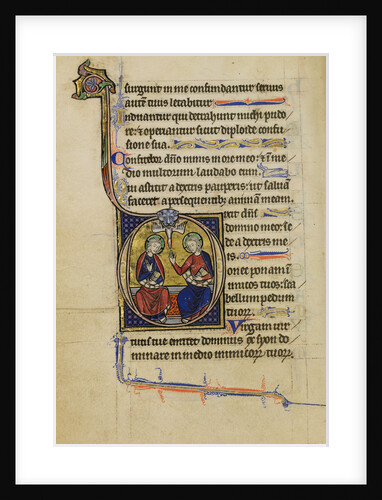 surgunt in me confundantur servus
aut̄ tuus letabitur
nduantur qui detrahunt michi pudo
re: ⁊ operiantur sicut diploide confu
sione sua.
Confitebor dño nimis in ore meo: ⁊ in me
dio multorum laudabo eum.
ui astitit a dextris pauperis: ut salvā
faceret a persequentib; animā meam.
ixit dñs
domino meo: se
de a dextris me
is.
onec ponam i
nimicos tuos: sca
bellum pedum
tuor̄.
Virgam vir
tutis tue emittet dominus ex syon do
minare in medio inimicor̄ tuor̄.